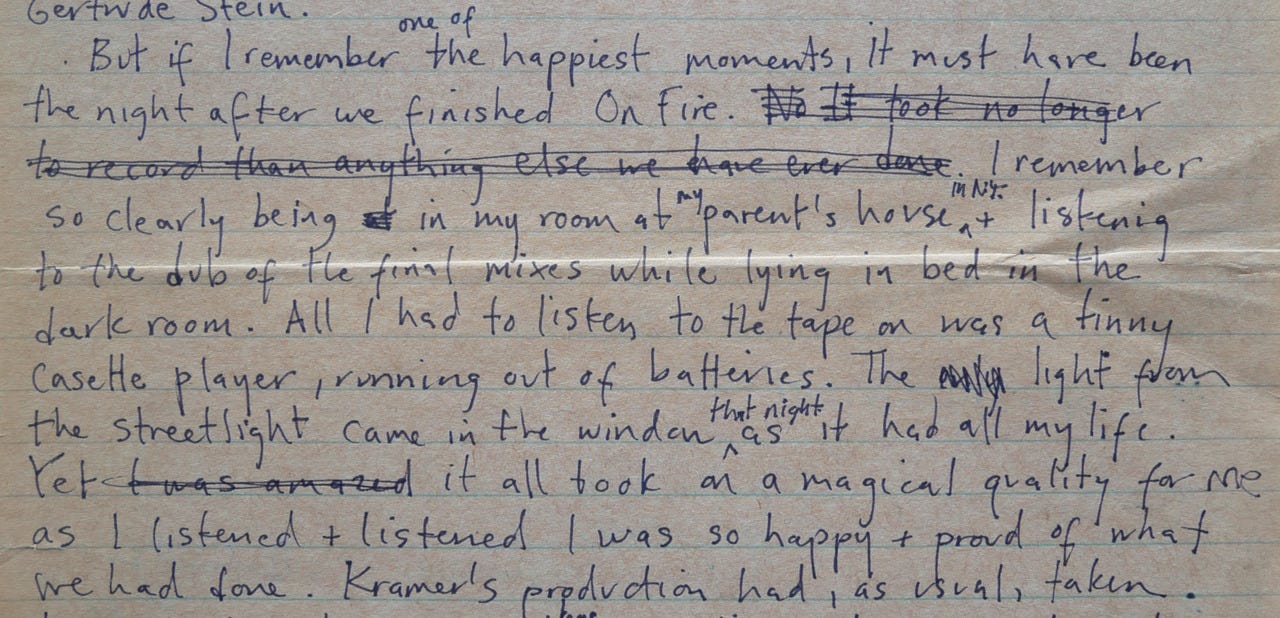 Gertrude Stein.
. But if I remember one of the happiest moments, it must have been
the night after we finished On Fire. No It took no longer
to record than anything else we have ever done. I remember
so clearly being in my room at my parent's house in N.Y. + listenig
to the dub of the final mixes while lying in bed in the
dark room. All I had to listen to the tape on was a tinny
casette player, running out of batteries. The light from
the streetlight came in the window that night as it had all my life.
Yet I was amazed it all took on a magical quality for me
as I listened + listened I was so happy + proud of what
we had done. Kramer's production had, as usual, taken